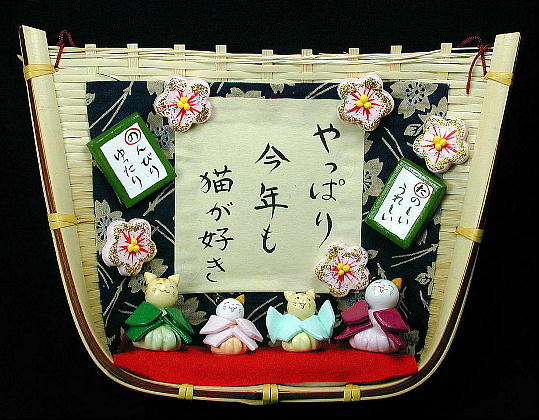 やっぱり
今年も
猫が好き
たのーしい
うれしい
のんびり
ゆったり